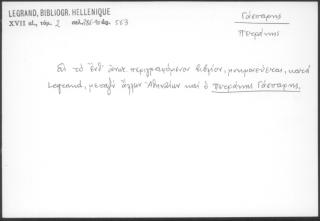 LEGRAND, BIBLIOGR. HELLENIQUE
XVII αἰ., τόμ. 2 σελ. ἀρ. 563
Γάσπαρης
Πετράκης
Εἰς τὸ ἐνθ' ἀνωτ. περιγραφόμενον βιβλίον, μνημονεύεται, κατὰ
Legrand, μεταξὺ ἄλλων Ἀθηναίων καὶ ὁ Πετράκης Γάσπαρης.